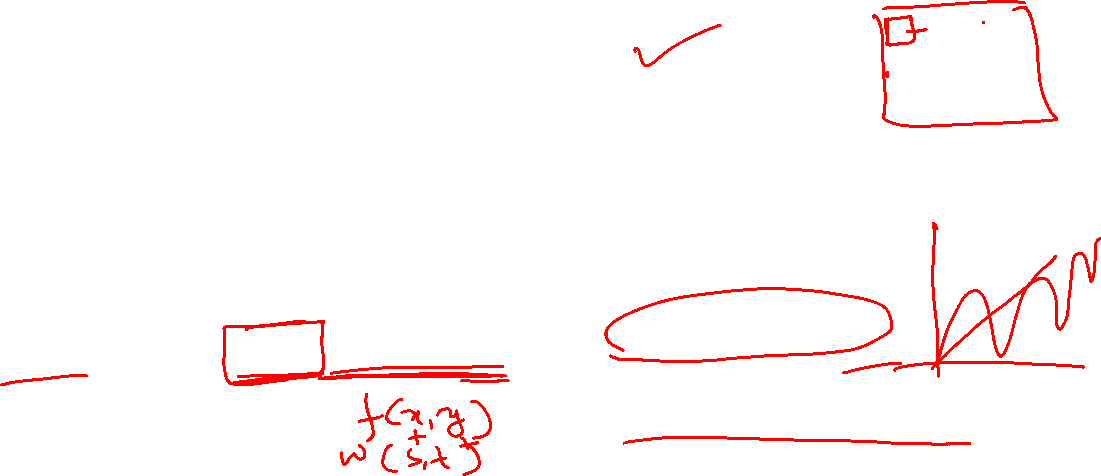 f(x,y)
+
w(s,t)